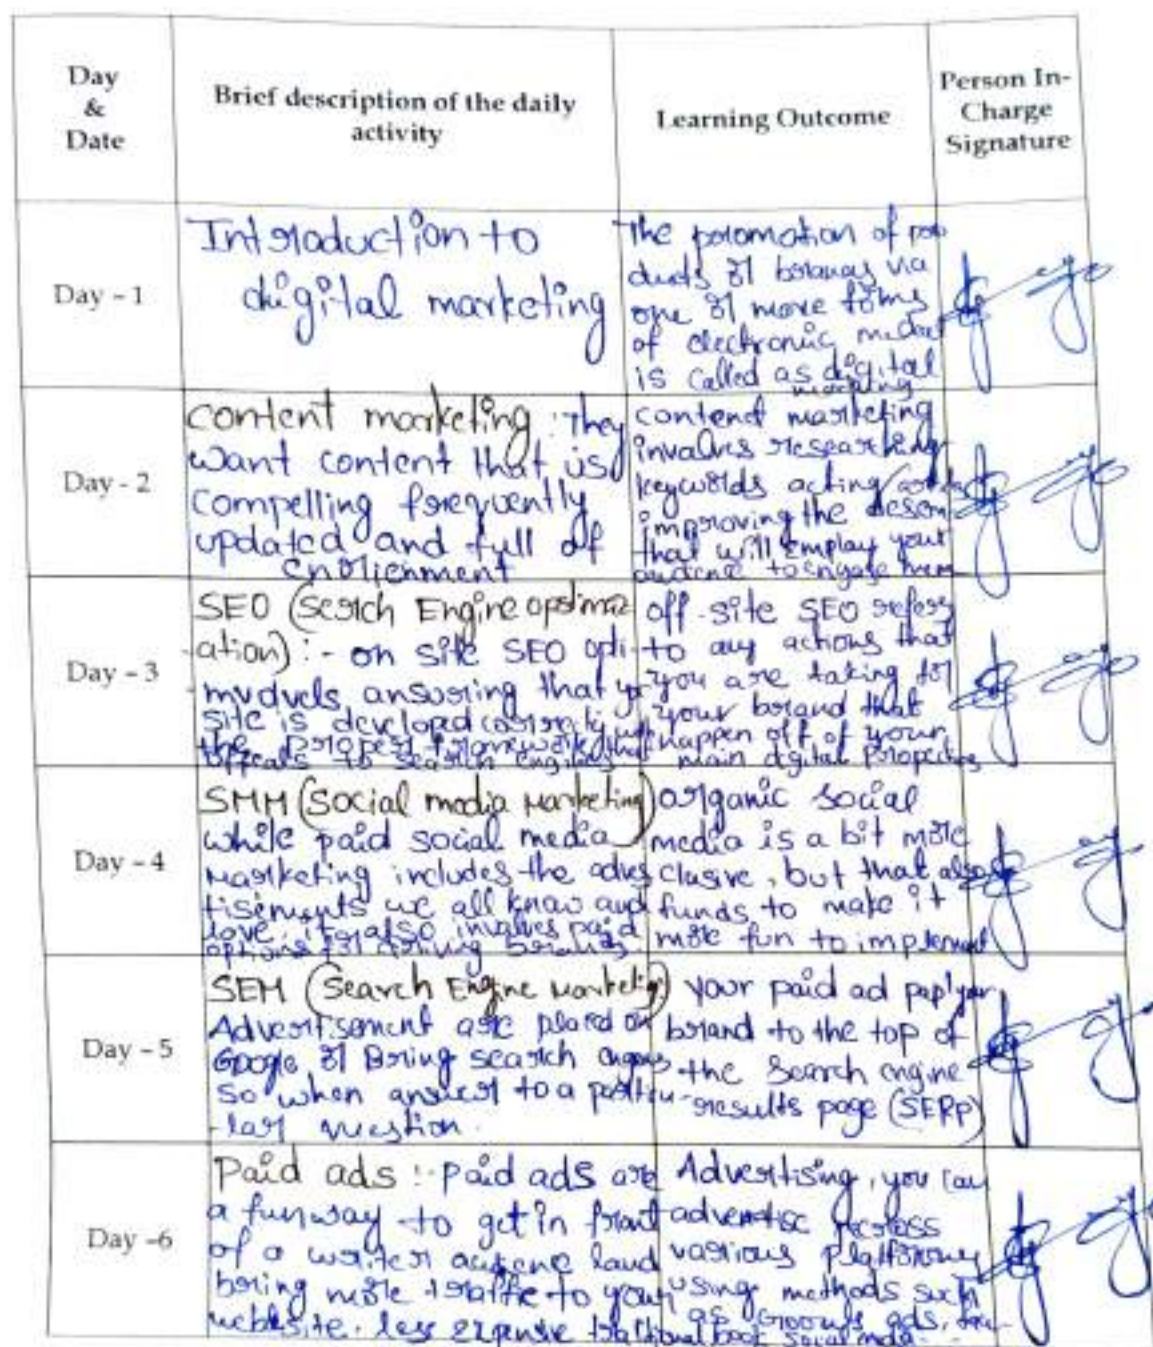 Day
&
Date
Brief description of the daily
activity
Learning Outcome
Person In-
Charge
Signature
Day - 1
Introduction to
digital marketing
The promotion of pro
ducts or brands via
one or more forms
of electronic media
is called as digital
marketing
Day - 2
content marketing : They
want content that is
compelling frequently
updated and full of
content marketing
involves researching
keywords acting
improving the
that will employ your
to engage
Day - 3
SEO (Serch Engine optimiz
-ation) :- on site SEO opti-
ansuring that
site is developed
the proper framework that
appeals to search engines
off-site SEO refers
to any actions that
you are taking for
your brand that
happen off of your
main dgital Properties
Day - 4
SMM (Social media Marketing)
while paid social media
Marketing includes the adver
tisements we all know and
love, it also involves paid
options for driving brands
organic social
media is a bit more
clusive, but that also
funds to make it
more fun to implement
Day - 5
SEM (Search Engine Marketing)
Advertisement are placed on
Google or Bring search engines
so when answer to a particu-
-lar question.
your paid ad
brand to the top of
the Search engine
results page (SERP)
Day -6
Paid ads :- paid ads are
a fun way to get in front
of a land
bring more traffic to your
website. less expensive
Advertising, you can
advertise
various platforms
using methods such
as ads,
social media